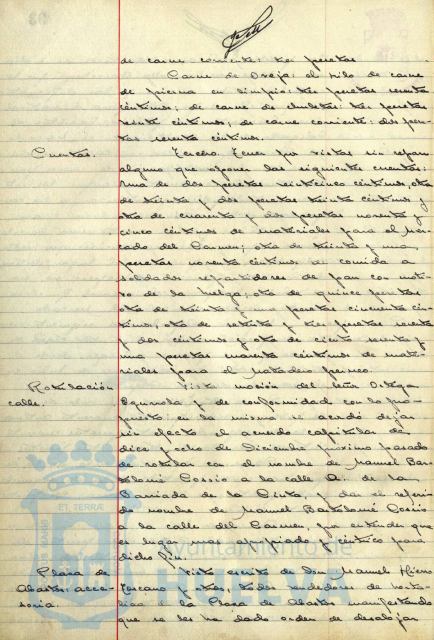 de carne corriente: tres pesetas
Carne de Oveja: el kilo de carne
de pierna en limpio: tres pesetas setenta
céntimos; de carne de chuletas: tres pesetas
veinte céntimos; de carne corriente: dos pese-
tas setenta céntimos.
Cuentas. Tercero. Tener por vistas sin reparo
alguno que oponer las siguientes cuentas:
Una de dos pesetas veinticinco céntimos, otra
de treinta y dos pesetas treinta céntimos y
otra de cuarenta y dos pesetas noventa y
cinco céntimos de materiales para el Mer-
cado del Carmen; otra de treinta y una
pesetas noventa céntimos de comida a
soldados repartidores de pan con moti-
vo de la huelga; otra de quince pesetas
otra de treinta y una pesetas cincuenta cén-
timos; otra de setenta y tres pesetas sesenta
y dos céntimos y otra de ciento sesenta y
una pesetas cuarenta céntimos de mate-
riales para el Matadero público.
Rotulación Vista moción del señor Ortega
calle. y de conformidad con lo pro-
puesto en la misma se acordó dejar
sin efecto el acuerdo capitular de
diez y ocho de Diciembre próximo pasado
de rotular con el nombre de Manuel Bar-
tolomé Cossio a la calle A. de la
Barriada de la Cinta, y dar el referi-
do nombre de Manuel Bartolomé Cossio
a la calle del Carmen, por entender que
es lugar mas apropiado y céntrico para
dicho fin.
Plaza de Visto escrito de Don Manuel
Abastos: acce- Toscano y otros, todos vendedores de
soria. la Plaza de Abastos manifestando
que se les ha dado orden de desalojar
Ayuntamiento de
HUELVA